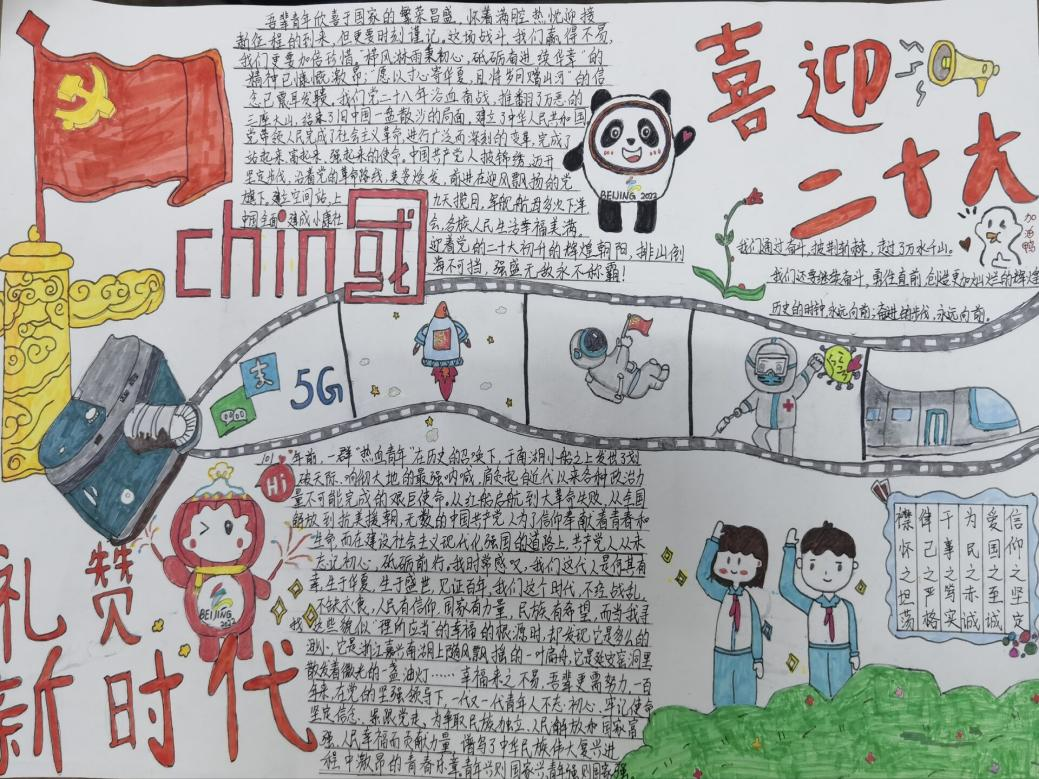 吾辈青年欣喜于国家的繁荣昌盛，怀着满腔热忱迎接
新征程的到来，但更要时刻谨记。这场战斗，我们赢得不易，
我们更要加倍珍惜。"栉风沐雨秉初心，砥砺奋进续华章"的
精神已慷慨激昂；"愿以寸心寄华夏，且将岁月赠山河"的信
念已聚车发辕。我们党二十八年浴血奋战，推翻了万恶的
三座大山，结束了旧中国一盘散沙的局面，建立了中华人民共和国
党带领人民完成了社会主义革命进行广泛而深刻的变革，完成了
站起来、富起来、强起来的使命。中国共产党人披锦绣，迈开
坚定步战，沿着党的革命路线，前进在迎风飘扬的党
旗下，建立空间站，上九天揽月，军舰航母多次下洋
中国全面建成小康社会，各族人民生活幸福美满。
迎着党的二十大初升的辉煌朝阳，排山倒
海不可挡，强盛无敌永不称霸！
喜迎
二十大
加油鸭
BEIJING 2022
chin国
我们通过奋斗，披荆斩棘，走过了万水千山。
我们还要继续奋斗，勇往直前，创造更加灿烂的辉煌
历史的时钟永远向前；奋进的步伐，永远向前。
支
5G
Hi
101年前，一群"热血青年"在历史的召唤下，于南湖小船之上发出了划
破天际、响彻大地的最强呐喊，肩负起自近代以来各种政治力
量不可能完成的艰巨使命，从红船启航到大革命失败，从全国
解放到抗美援朝，无数的中国共产党人为了信仰奉献着青春和
生命，而在建设社会主义现代化强国的道路上，共产党人从未
忘记初心，砥砺前行，我时常感叹，我们这代人是何其有
幸，生于华夏，生于盛世，见证百年，我们这个时代，不经战乱，
不缺衣食，人民有信仰，国家有力量，民族有希望，而当我寻
找这些貌似"理的应当"的幸福的根源时，却发现它是多么的
渺小，它是浙江嘉兴南湖上随风飘摇的一叶扁舟，它是延安窑洞里
散发着微光的一盏油灯……幸福来之不易，吾辈更需努力，一百
年来，在党的坚强领导下，一代又一代青年人不忘初心，牢记使命
坚定信念、紧跟党走，为争取民族独立、人民解放和国家富
强、人民幸福而贡献力量，谱写了中华民族伟大复兴进
程中激昂的青春乐章，青年兴则国家兴，青年强则国家强。
BEIJING
2022
礼赞
新时代
信仰之坚定
爱国之至诚
为民之赤诚
干事之笃实
律己之严格
襟怀之坦荡